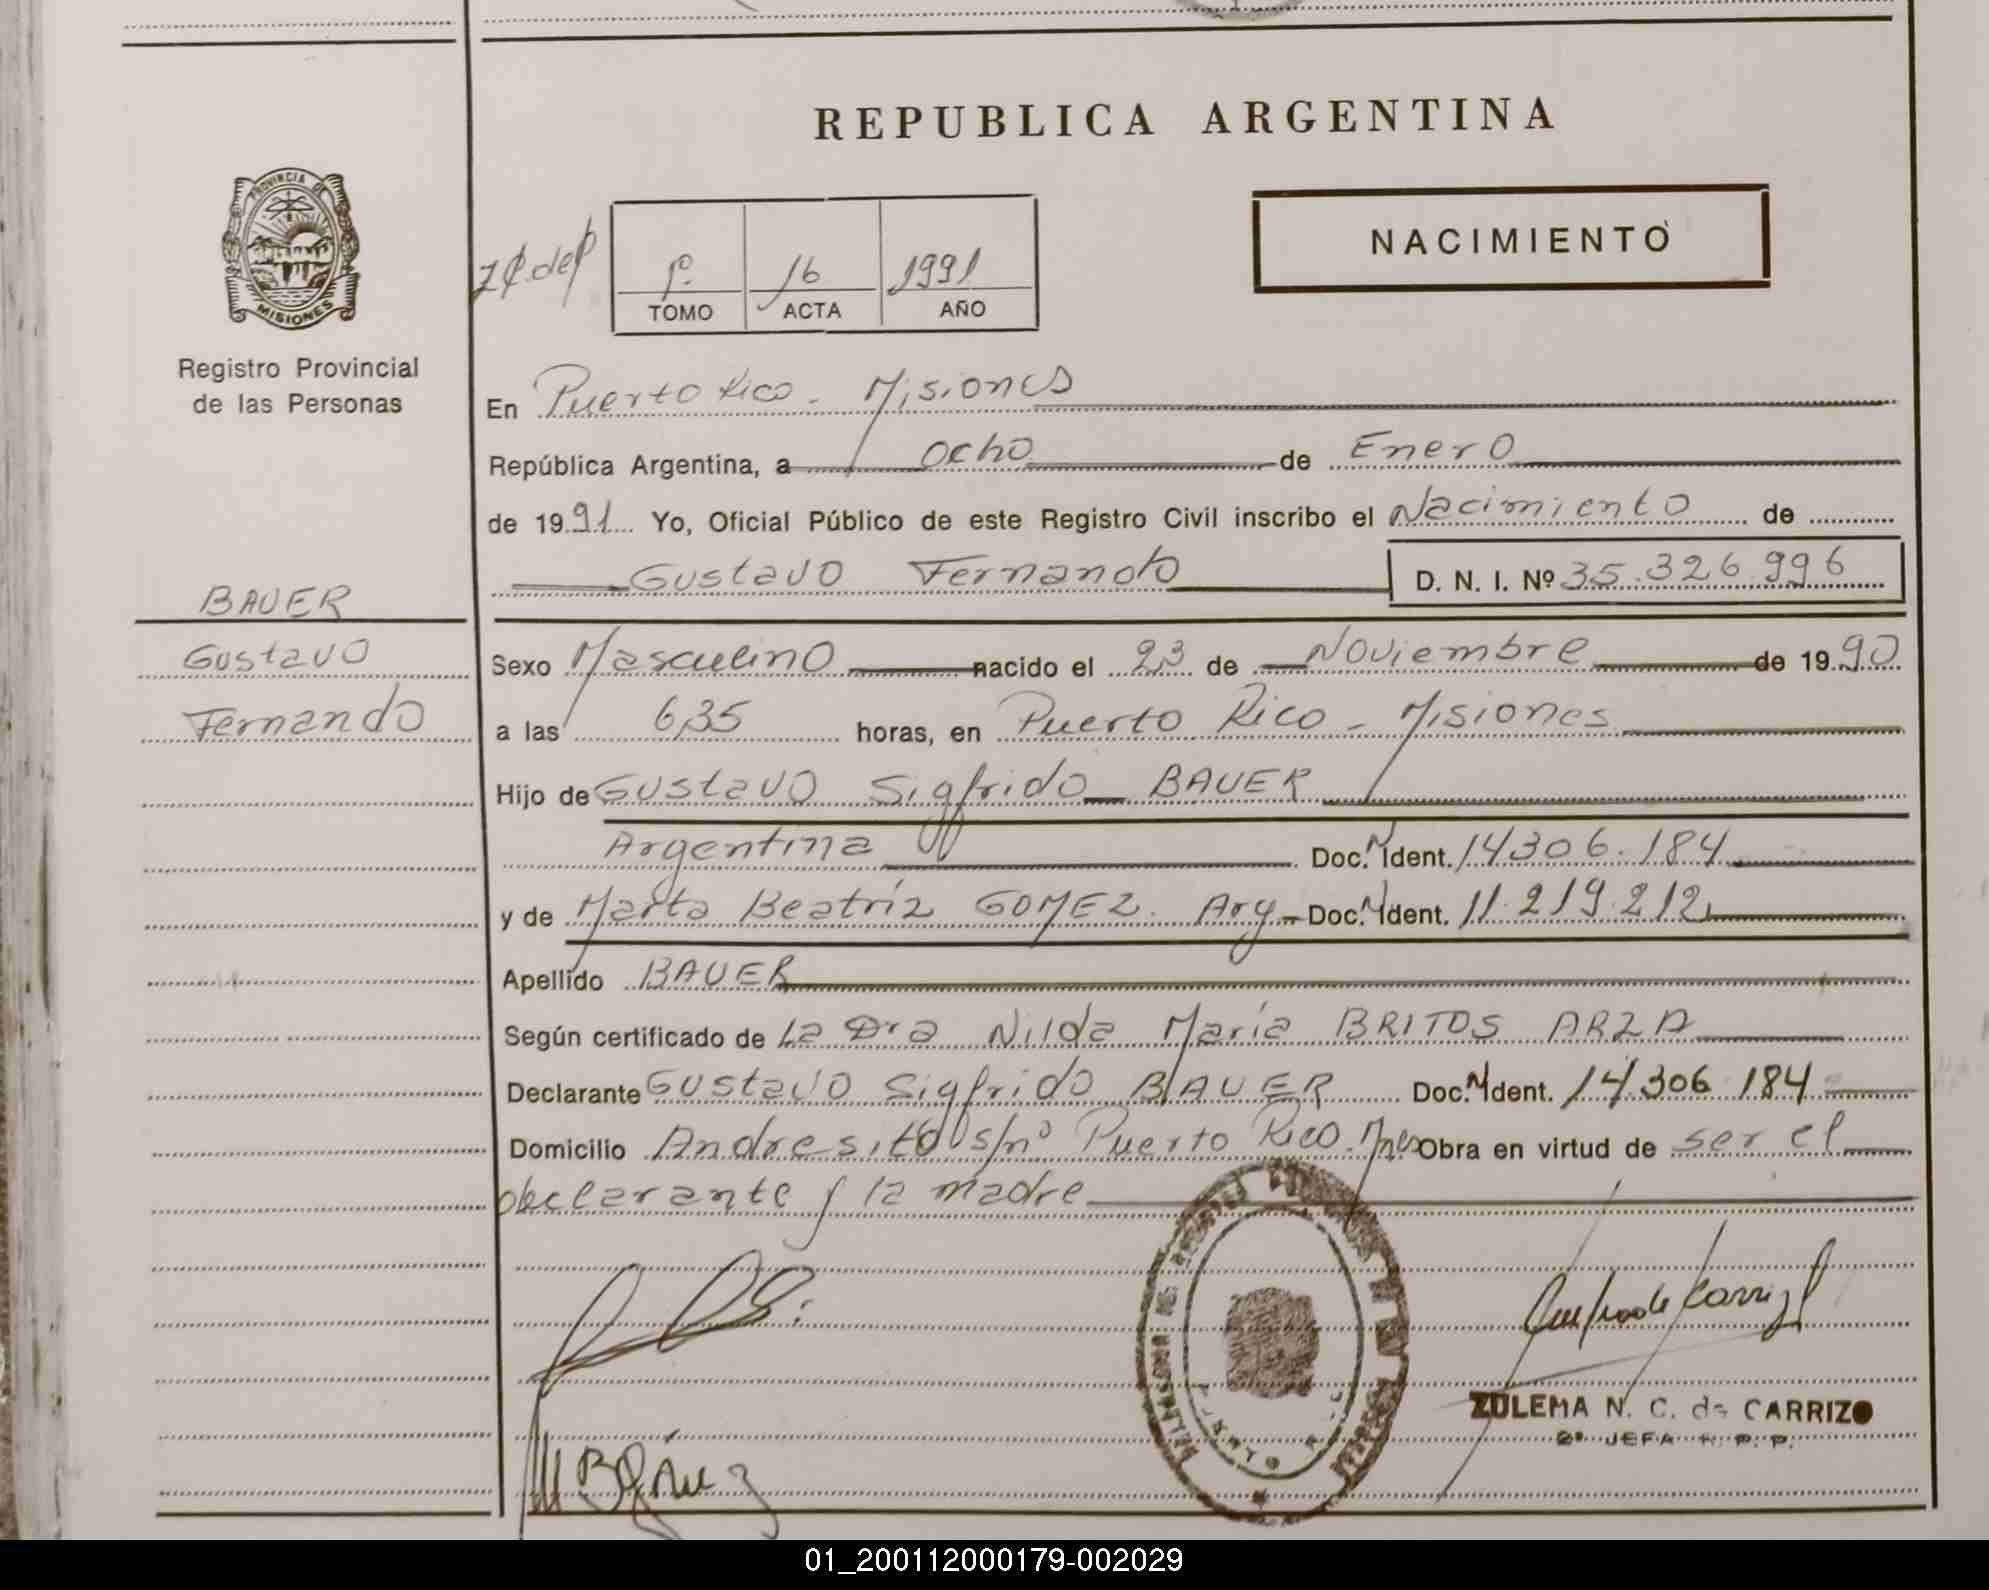 REPUBLICA ARGENTINA
PROVINCIA DE
MISIONES
Registro Provincial
de las Personas
NACIMIENTO
1º 16 1991
TOMO ACTA AÑO
En Puerto Rico - Misiones
República Argentina, a ocho de Enero
de 1991 Yo, Oficial Público de este Registro Civil inscribo el Nacimiento de
Gustavo Fernando D. N. I. Nº 35.326.996
BAUER
Gustavo
Fernando
Sexo Masculino nacido el 23 de Noviembre de 1990
a las 6,35 horas, en Puerto Rico - Misiones
Hijo de Gustavo Sigfrido BAUER
Argentina Doc. Ident. 14.306.184
y de Marta Beatríz GOMEZ. Arg Doc. Ident. 11.219.212
Apellido BAUER
Según certificado de La Dra Nilda María BRITOS ARZA
Declarante Gustavo Sigfrido BAUER Doc. Ident. 14.306.184
Domicilio Andresito s/nº Puerto Rico. Mnes Obra en virtud de ser el
declarante y la madre
ZULEMA N. C. de CARRIZO
2ª JEFA R. P. P.
01_200112000179-002029